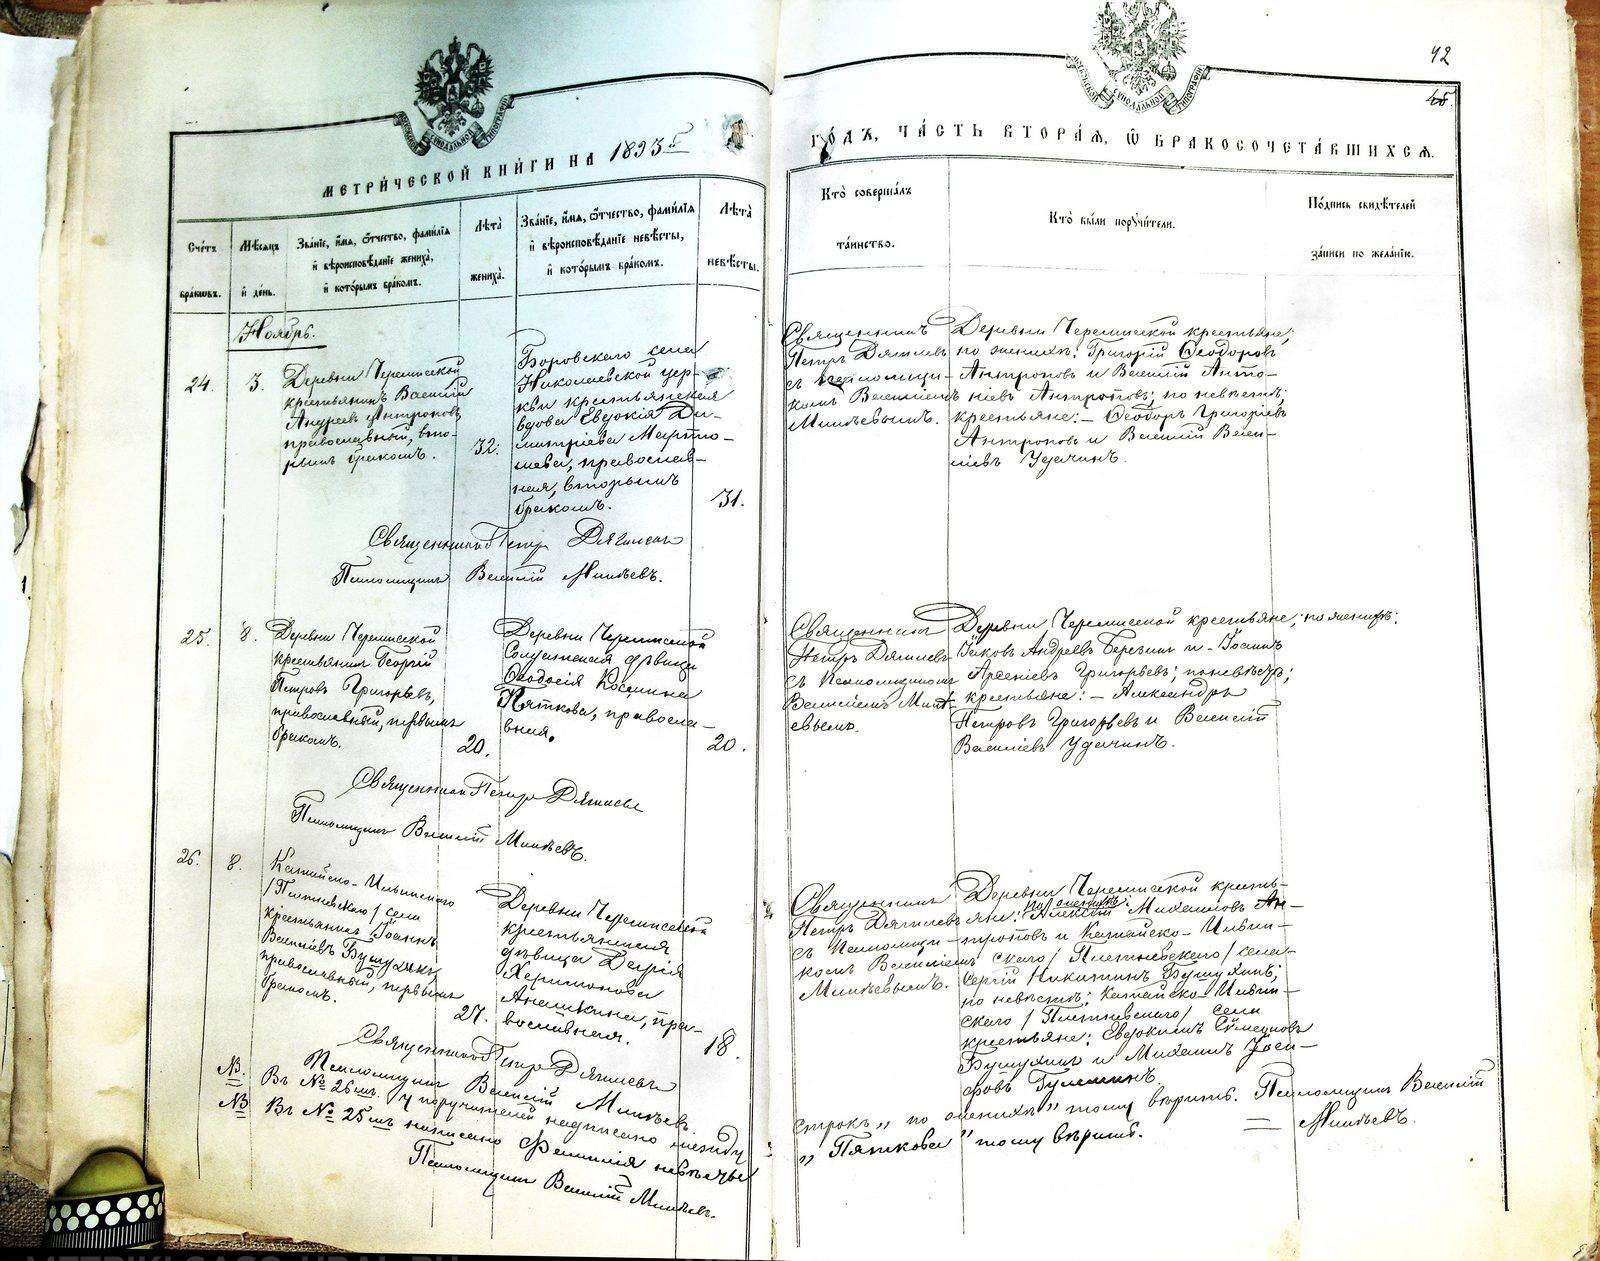 42
45.
МЕТРИ́ЧЕСКОЙ КНИ́ГИ НА 1893 г.
ГО́ДЪ, ЧА́СТЬ ВТОРА́Я, Ѽ БРАКОСОЧЕТА́ВШИХСЯ.
Сче́тъ бра́ковъ.
Мѣ́сяцъ и́ де́нь.
Зва́нїе, и́мя, ѻ́тчество, фами́лїя и́ вѣроисповѣ́данїе жениха̀, и́ кото́рымъ бра́комъ.
Лѣта̀ жениха̀.
Зва́нїе, и́мя, ѻ́тчество, фами́лїя и́ вѣроисповѣ́данїе невѣ́сты, и́ кото́рымъ бра́комъ.
Лѣта̀ невѣ́сты.
Кто̀ соверша́лъ та́инство.
Кто̀ бы́ли поручи́тели.
По́дпись свидѣ́телей за́писи по жела́нїю.
Ноябрь.
24.
3.
Деревни Черемисской
крестьянинъ Василій
Андреевъ Антроповъ
православный, вто-
рымъ бракомъ.
32.
Боровскаго села
Николаевской цер-
кви крестьянская
вдова Евдокія Ди-
митріева
православ-
ная, вторымъ
бракомъ.
31.
Священникъ
Петръ Дягилевъ
съ псаломщи-
комъ Василіемъ
Михѣевымъ.
Деревни Черемисской крестьяне;
по женихѣ: Григорій Ѳеодоровъ
Антроповъ и Василій Анто-
ніевъ Антроповъ; по невѣстѣ:
крестьяне: – Ѳеодоръ Григоріевъ
Антроповъ и Василій Васи-
ліевъ Удачинъ.
Священникъ Петръ Дягилевъ
Псаломщикъ Василій Михѣевъ.
25.
8.
Деревни Черемисской
крестьянинъ Георгій
Петровъ Григорьевъ,
православный, первымъ
бракомъ.
20.
Деревни Черемисской
Солдатская дѣвица
Ѳеодосія Космина
Пяткова, правосла-
вная.
20.
Священникъ
Петръ Дягилевъ
съ Псаломщикомъ
Василіемъ Михѣ-
евымъ.
Деревни Черемисской крестьяне; по женихѣ:
Іаковъ Андреевъ Березинъ и Іоаннъ
Арсеніевъ Григорьевъ; по невѣстѣ;
крестьяне: – Александръ
Петровъ Григорьевъ и Василій
Василіевъ Удачинъ.
Священникъ Петръ Дягилевъ
Псаломщикъ Василій Михѣевъ.
26.
8.
Катайско-Ильинскаго
/Плетневскаго/ села
крестьянинъ Іоаннъ
Василіевъ Бушухинъ
православный, первымъ
бракомъ.
27.
Деревни Черемисской
крестьянская
дѣвица Дарія
Харитонова
Ананкина, пра-
вославная.
18.
Священникъ
Петръ Дягилевъ
съ Псаломщи-
комъ Василіемъ
Михѣевымъ.
Деревни Черемисской кресть-
по женихѣ:
яне: Алексій Михаиловъ Ан-
троповъ и Катайско-Ильин-
скаго /Плетневскаго/ села
Сергій Никитинъ Бушухинъ;
по невѣстѣ: Катайско-Ильин-
скаго /Плетневскаго/ села
крестьяне: Евдокимъ
Бушухинъ и Михаилъ Іоси-
фовъ
Священникъ Петръ Дягилевъ
Псаломщикъ Василій Михѣевъ.
NB. Въ № 26мъ. У поручителей надписано между
строкъ „по женихѣ" тому вѣрить. Псаломщикъ Василій
Михѣевъ.
NB Въ № 25мъ написано Фамилія невѣсты
„Пяткова" тому вѣрить.
Псаломщикъ Василій Михѣевъ.